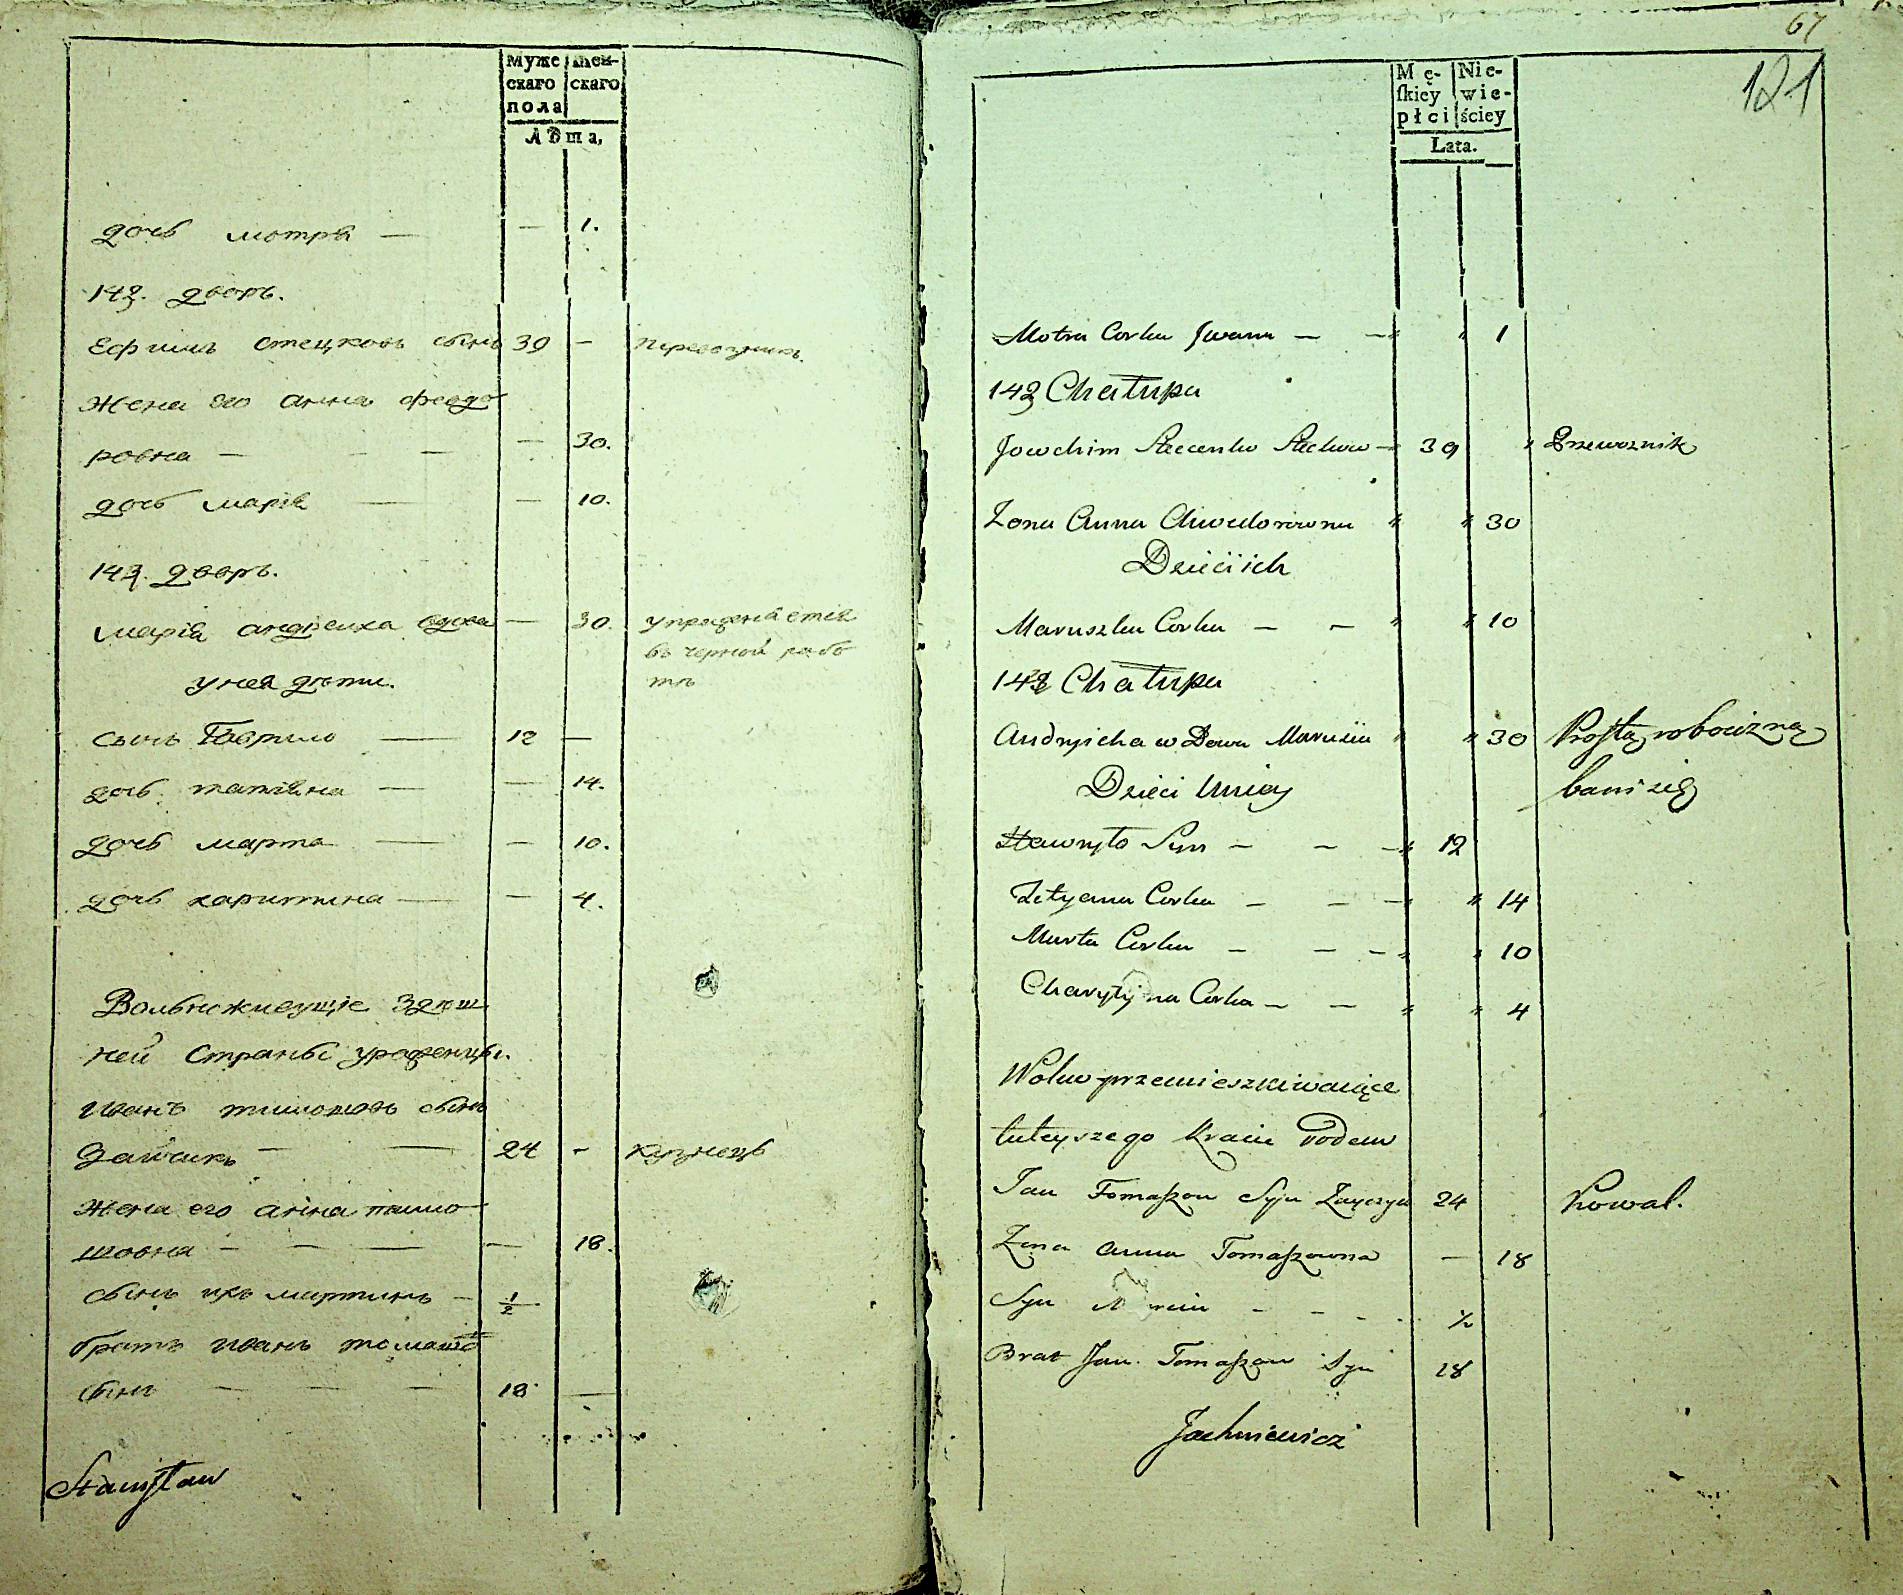 Муже
скаго
пола
Жен-
скаго
Лѣта,
дочь мотря — — 1.
142. дворъ.
Ефимъ стецковъ сынъ 39 — перевозчикъ
Жена его анна феодо
ровна — — — — 30.
дочь марія — — 10.
143. дворъ.
марія андреиха вдова — 30. упражняется
въ черной рабо
тѣ
у нея дѣти.
сынъ Гаврило — 12 —
дочь татіяна — — 14.
дочь марта — — 10.
дочь харитина — — 4.
Вольноживущіе здѣш
ней страны уроженцы.
иванъ тимошовъ сынъ
Зайчикъ — — 24 - кузнецъ
жена его анна тимо
шовна — — — 18.
сынъ ихъ мартинъ — 1/2
братъ иванъ томашов
сынъ — — — 18 —
Stanisław
67
121
Mę-
skiey
płci
Nie-
wie-
ściey
Lata.
Motra Corka Jwana — — " " 1
142 Chałupa
Jowchim Stecenko Steckow — " 39 " Przewoznik
Zona Anna Chwedorowna " " 30
Dzieci ich
Maruszka Corka — — " " 10
143 Chałupa
Andryicha wDowa Marusia " " 30 Prostą robocizną
bawi się
Dzieci Uniey
Hawryło Syn — — — " 12
Tetyanna Corka — — — " " 14
Marta Corka — — — " " 10
Charytyna Corka — — " " 4
Wolno przemieszkiwaiące
tuteyszego kraiu rodem
Jan Tomaszow Syn Zayczyk 24 Kowal.
Zona anna Tomaszowna — 18
Syn - - - - 1/2
Brat Jan Tomaszow Syn 18
Jachniewicz